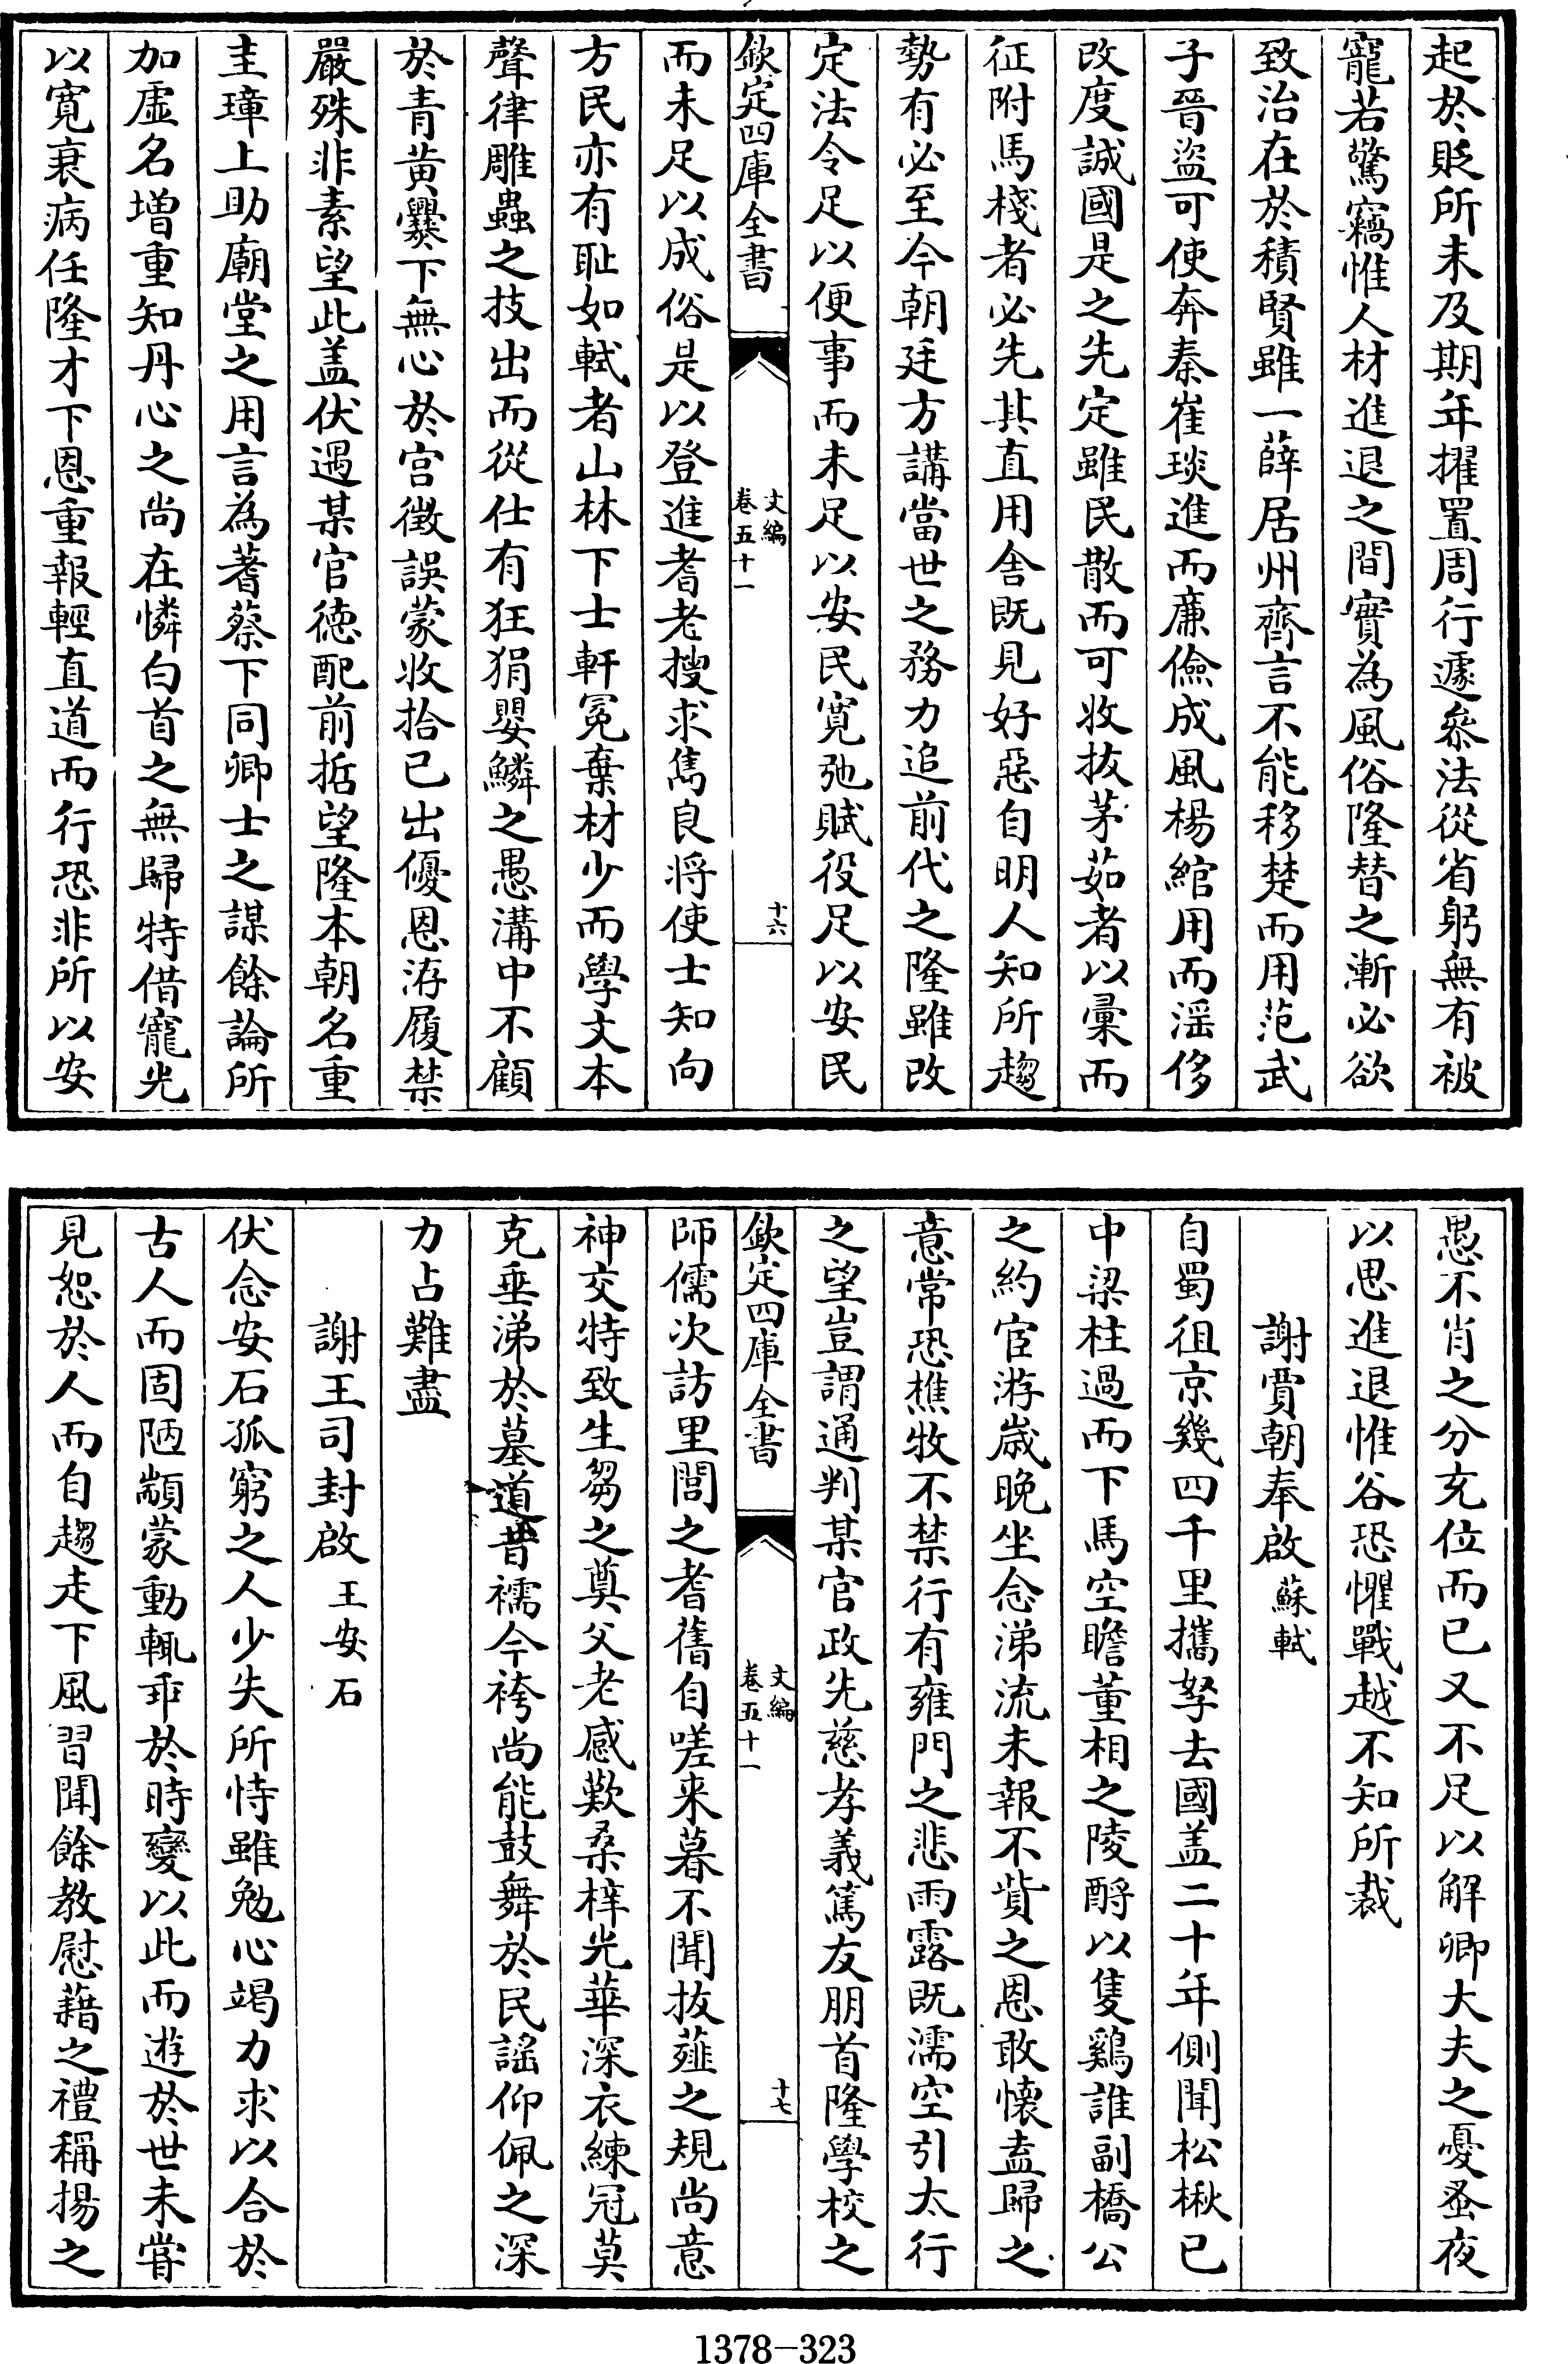 起於貶所未及期年擢置周行遽參法從省躬無有被
寵若驚竊惟人材進退之間實為風俗隆替之漸必欲
致治在於積賢雖一薛居州齊言不能移楚而用范武
子晉盜可使奔秦崔琰進而廉儉成風楊綰用而滛侈
改度誠國是之先定雖民散而可收拔茅茹者以彙而
征附馬棧者必先其直用舍既見好惡自明人知所趨
勢有必至今朝廷方講當世之務力追前代之隆雖改
定法令足以便事而未足以安民寛弛賦役足以安民
欽定四庫全書
文編
卷五十一
十六
而未足以成俗是以登進耆老搜求雋良將使士知向
方民亦有恥如軾者山林下士軒冕棄材少而學文本
聲律雕蟲之技出而從仕有狂狷嬰鱗之愚溝中不顧
於青黃爨下無心於宮徵誤蒙收拾已出優恩洊履禁
嚴殊非素望此盖伏遇某官德配前哲望隆本朝名重
圭璋上助廟堂之用言為蓍蔡下同卿士之謀餘論所
加虛名增重知丹心之尚在憐白首之無歸特借寵光
以寛衰病任隆才下恩重報輕直道而行恐非所以安
愚不肖之分充位而已又不足以解卿大夫之憂蚤夜
以思進退惟谷恐懼戰越不知所裁
謝賈朝奉啟 蘇軾
自蜀徂京幾四千里攜孥去國盖二十年側聞松楸已
中梁柱過而下馬空瞻董相之陵酹以隻鷄誰副橋公
之約宦游歲晚坐念涕流未報不貲之恩敢懷盍歸之
意常恐樵牧不禁行有雍門之悲雨露既濡空引太行
之望豈謂通判某官政先慈孝義篤友朋首隆學校之
欽定四庫全書
文編
卷五十一
十七
師儒次訪里閭之耆舊自嗟来暮不聞拔薤之規尚意
神交特致生芻之奠父老感歎桑梓光華深衣練冠莫
克垂涕於墓道昔襦今袴尚能鼓舞於民謠仰佩之深
力占難盡
謝王司封啟 王安石
伏念安石孤窮之人少失所恃雖勉心竭力求以合於
古人而固陋顓蒙動輒乖於時變以此而遊於世未嘗
見恕於人而自趨走下風習聞餘教慰藉之禮稱揚之
1378-323